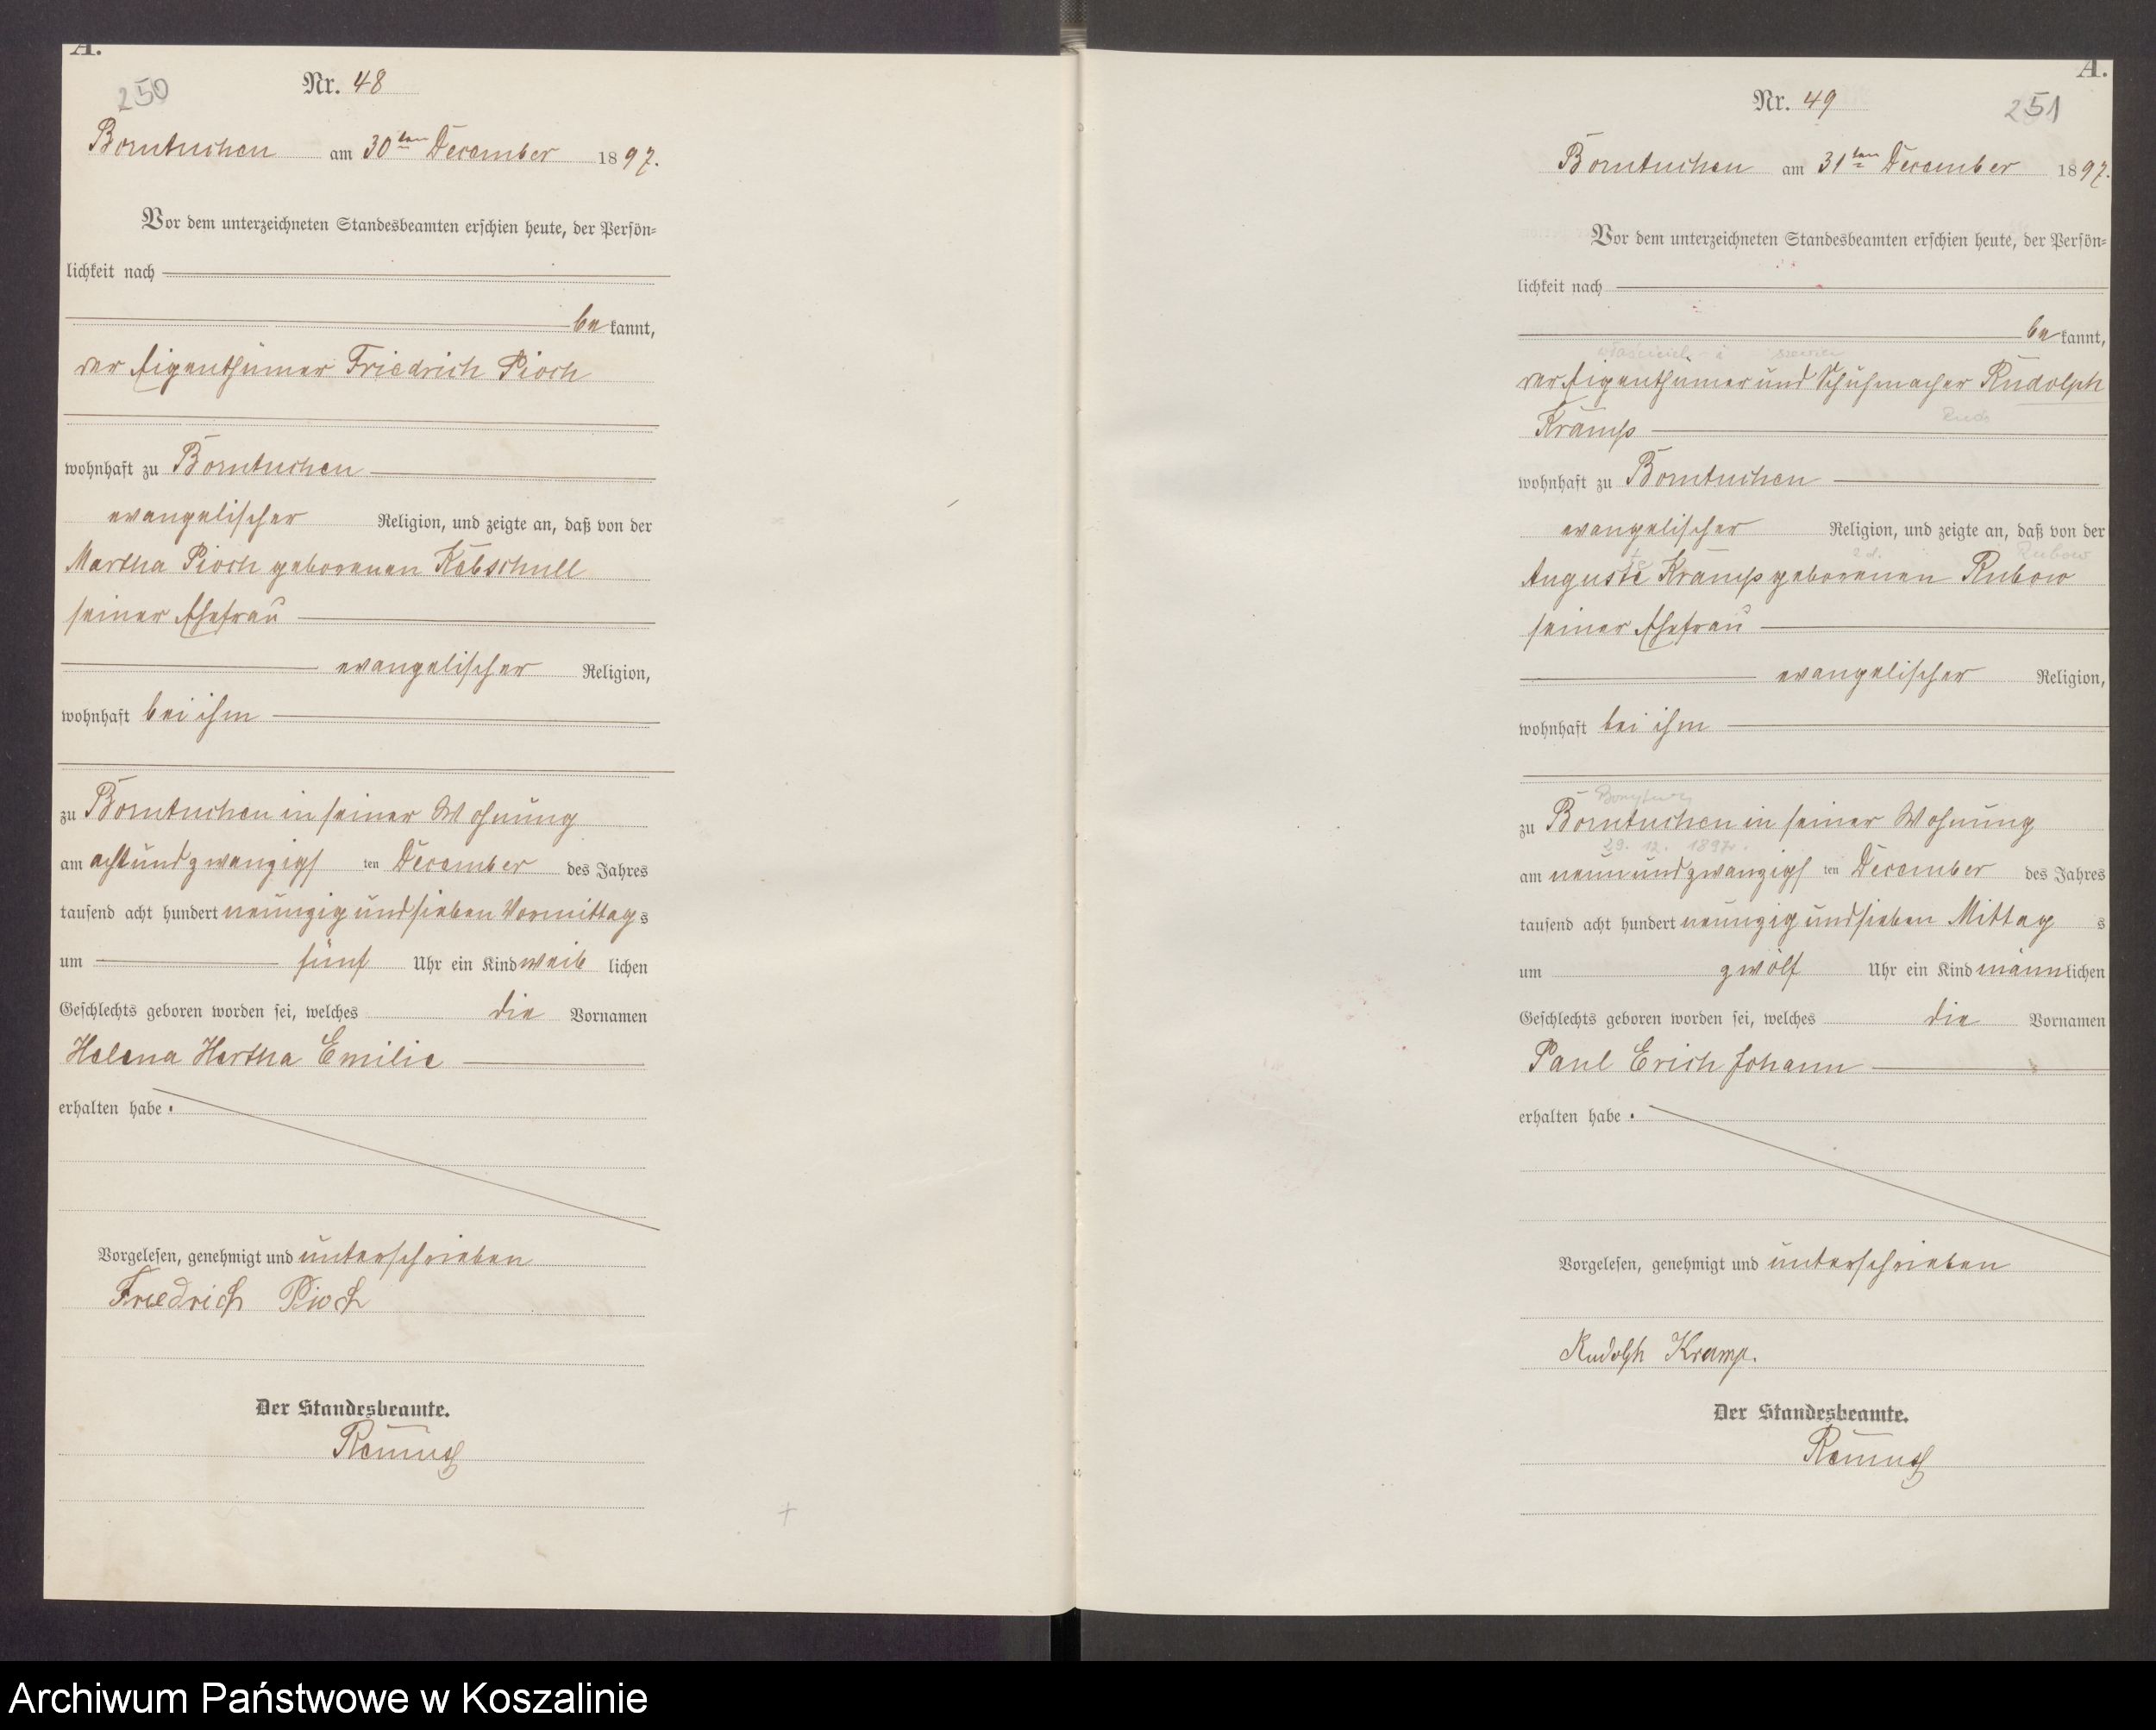 A.
250
Nr. 48
Borntuchen am 30ten December 1897.
Vor dem unterzeichneten Standesbeamten erschien heute, der Persön-
lichkeit nach
bekannt,
der Eigenthümer Friedrich Pioch
wohnhaft zu Borntuchen
evangelischer Religion, und zeigte an, daß von der
Martha Pioch geborenen Kobschull
seiner Ehefrau
evangelischer Religion,
wohnhaft bei ihm
zu Borntuchen in seiner Wohnung
am achtundzwanzigsten December des Jahres
tausend acht hundert neunzig und sieben Vormittags
um fünf Uhr ein Kind weiblichen
Geschlechts geboren worden sei, welches die Vornamen
Helena Hertha Emilie
erhalten habe.
Vorgelesen, genehmigt und unterschrieben
Friedrich Pioch
Der Standesbeamte.
A.
251
Nr. 49
Borntuchen am 31ten December 1897.
Vor dem unterzeichneten Standesbeamten erschien heute, der Persön-
lichkeit nach
bekannt,
der Eigenthümer und Schuhmacher Rudolph
Kramp
wohnhaft zu Borntuchen
evangelischer Religion, und zeigte an, daß von der
Rubow
Auguste Kramp geborenen Rubow
seiner Ehefrau
evangelischer Religion,
wohnhaft bei ihm
zu Borntuchen in seiner Wohnung
29. 12. 1897.
am neunundzwanzigsten December des Jahres
tausend acht hundert neunzig und sieben Mittags
um zwölf Uhr ein Kind männlichen
Geschlechts geboren worden sei, welches die Vornamen
Paul Erich Johann
erhalten habe.
Vorgelesen, genehmigt und unterschrieben
Rudolph Kramp.
Der Standesbeamte.
Archiwum Państwowe w Koszalinie